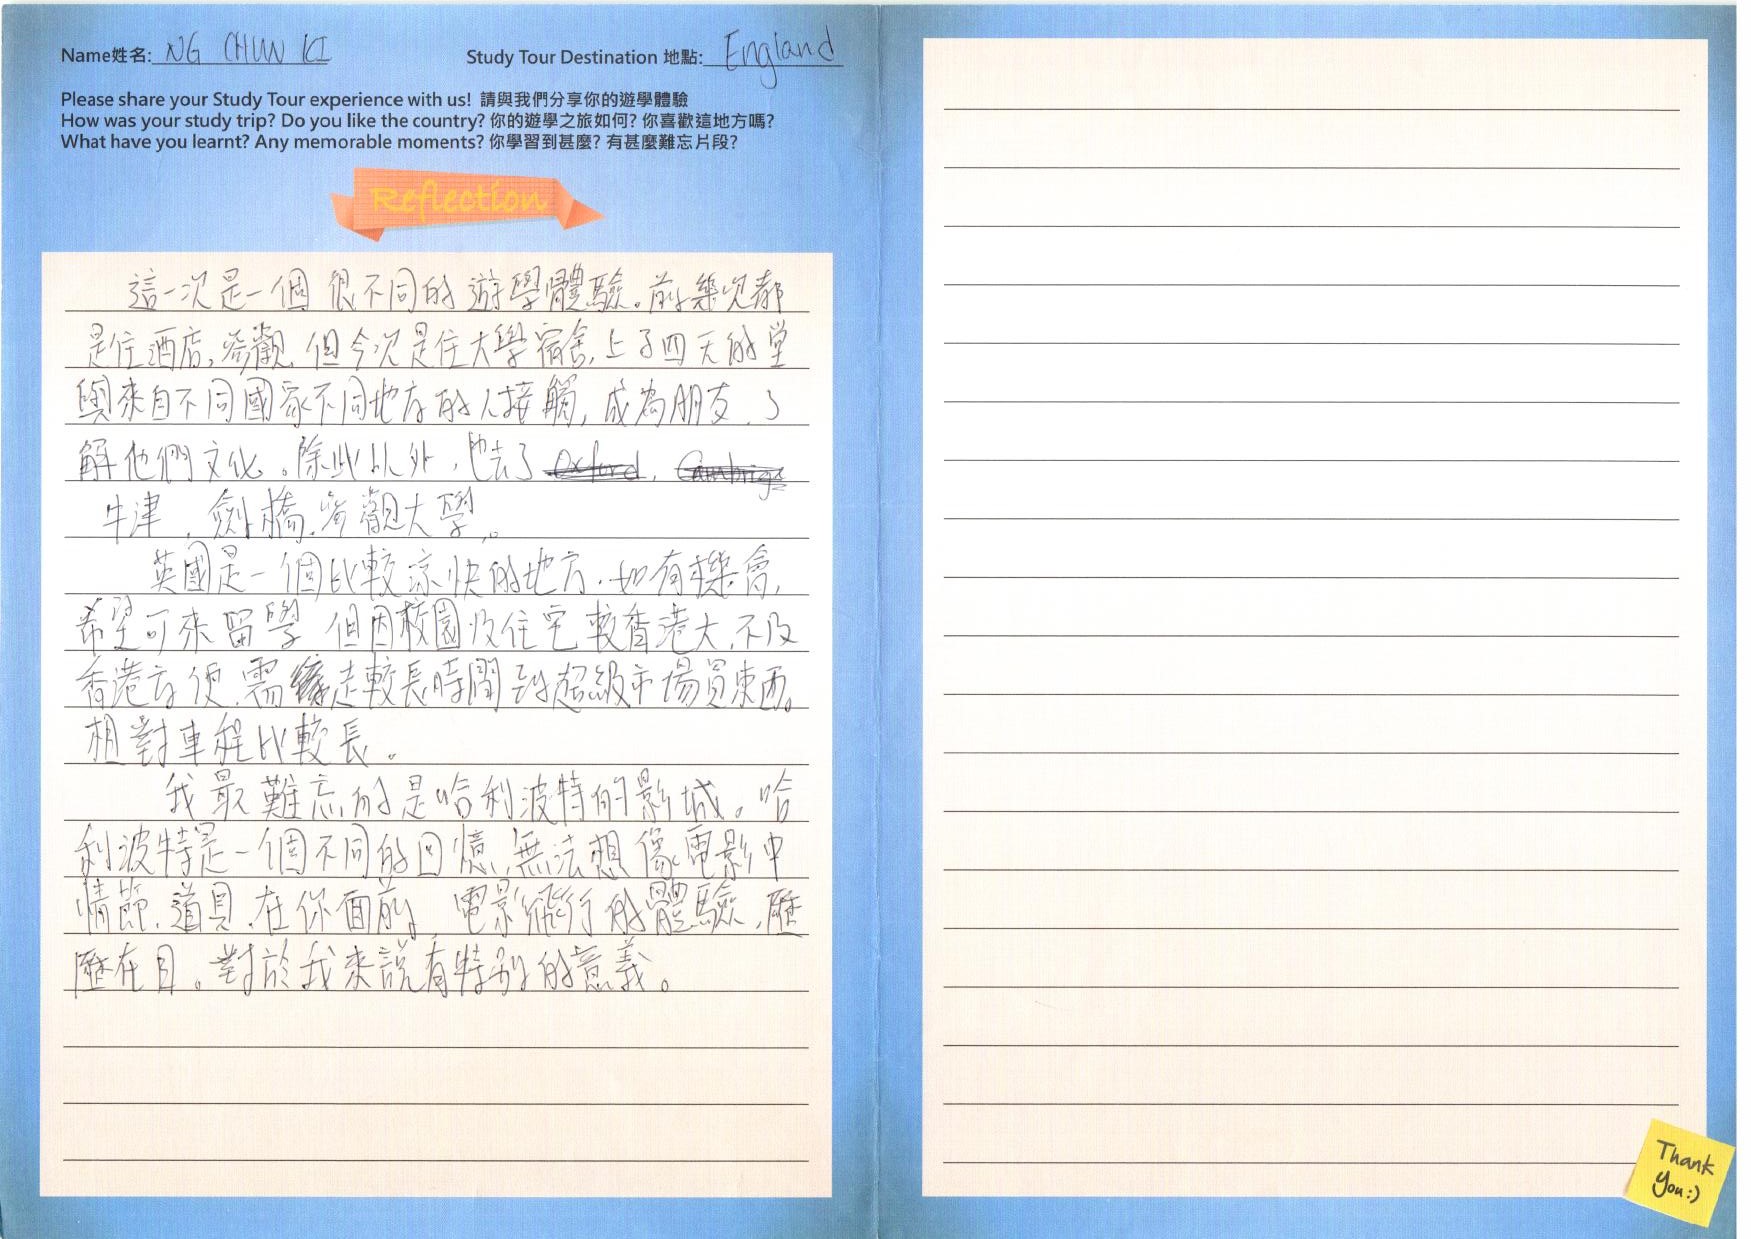 Name姓名: NG CHUN KI
Study Tour Destination 地點: England
Please share your Study Tour experience with us! 請與我們分享你的遊學體驗
How was your study trip? Do you like the country? 你的遊學之旅如何? 你喜歡這地方嗎?
What have you learnt? Any memorable moments? 你學習到甚麼? 有甚麼難忘片段?
Reflection
這一次是一個很不同的遊學體驗。前幾次都
是住酒店,參觀,但今次是住大學宿舍,上了四天的堂
與來自不同國家不同地方的人接觸,成為朋友,了
解他們文化。除此以外,也去了 Oxford, Cambrige
牛津,劍橋,參觀大學。
英國是一個比較涼快的地方,如有機會,
希望可來留學,但因校園及住宅較香港大,不及
香港方便,需走較長時間到超級市場買東西。
相對車程比較長。
我最難忘的是哈利波特的影城。哈
利波特是一個不同的回憶,無法想像電影中
情節,道具,在你面前,電影飛行的體驗,歷
歷在目。對於我來說有特別的意義。
Thank
You:)